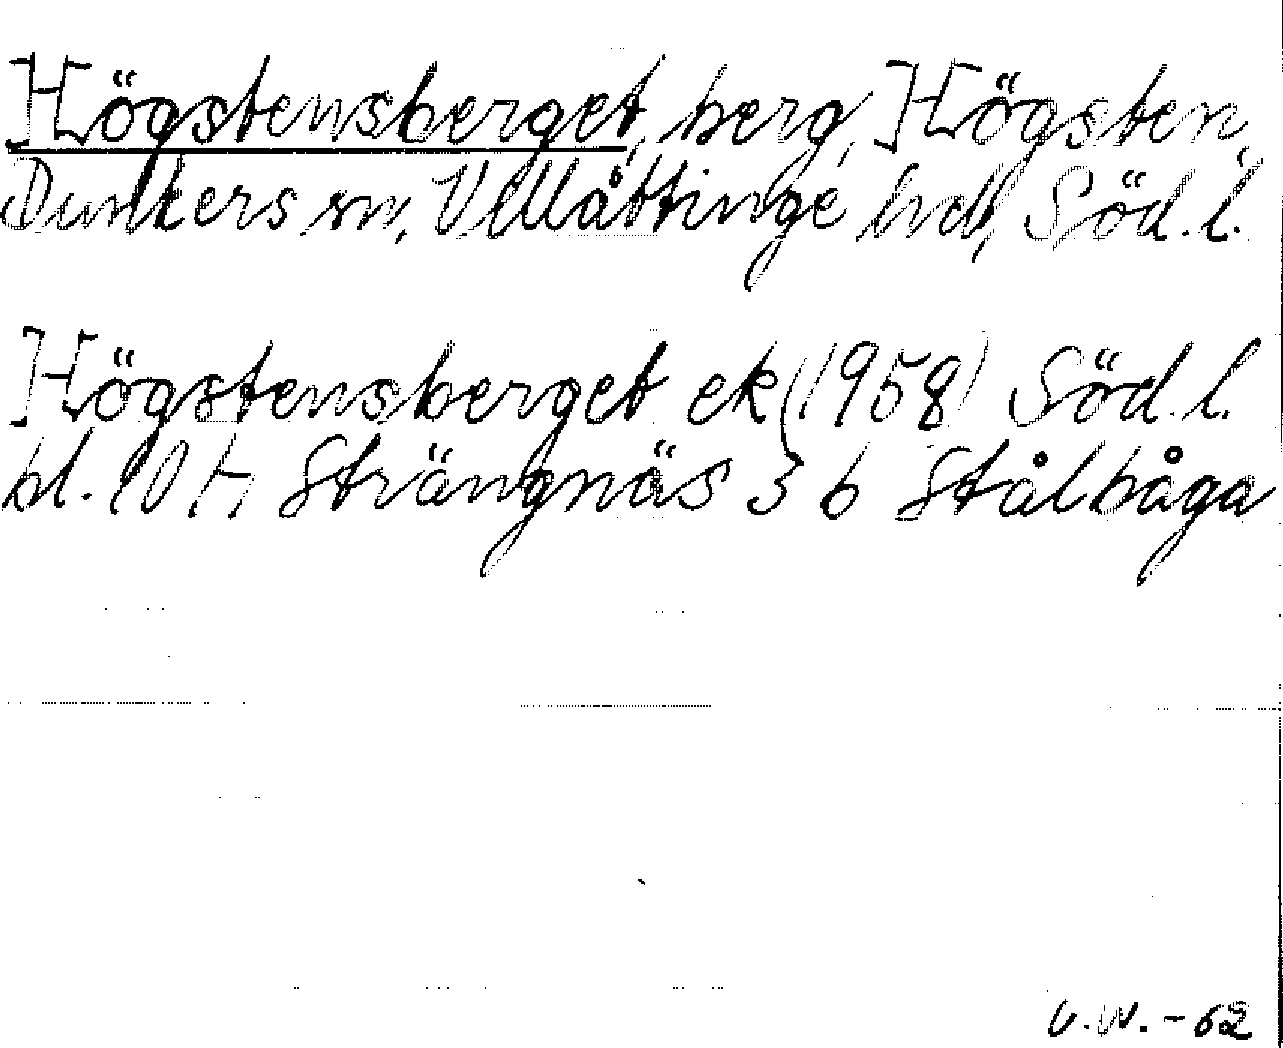 Högstensberget, berg, Högsten,
Dunkers sn, Villåttinge hd, Söd. l.
Högstensberget ek (1958) Söd. l.
bl. 10 H Strängnäs 3 b Stålbåga
V.W. - 62